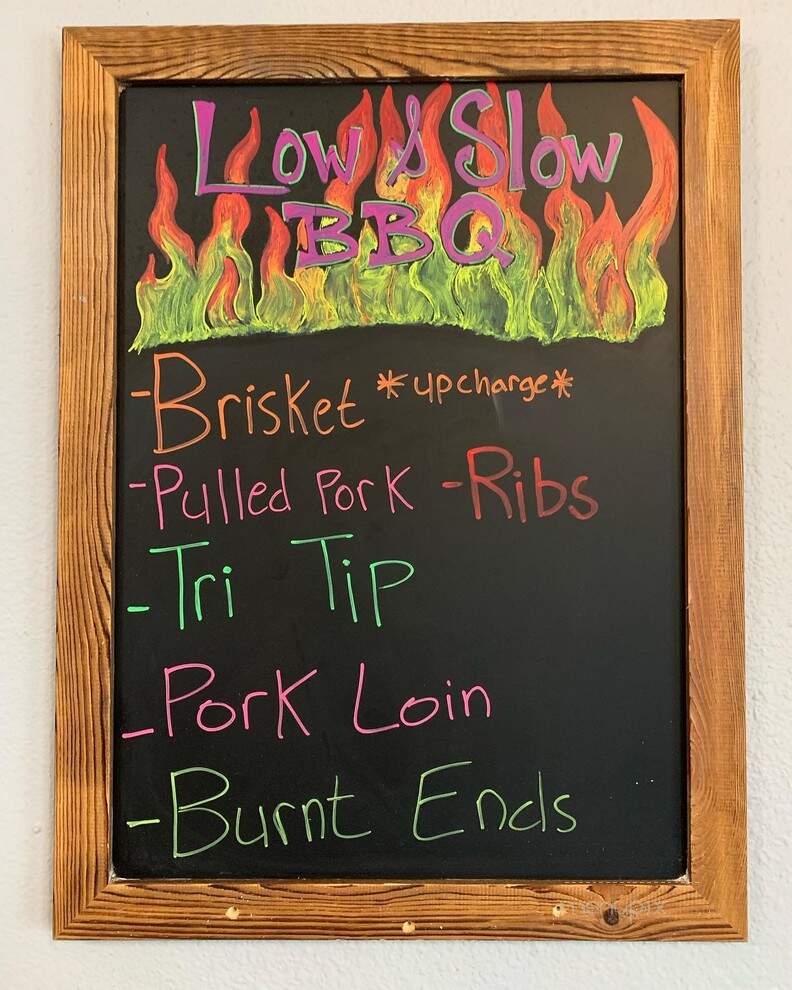 Low & Slow
BBQ
-Brisket *upcharge*
-Pulled Pork -Ribs
-Tri Tip
-Pork Loin
-Burnt Ends